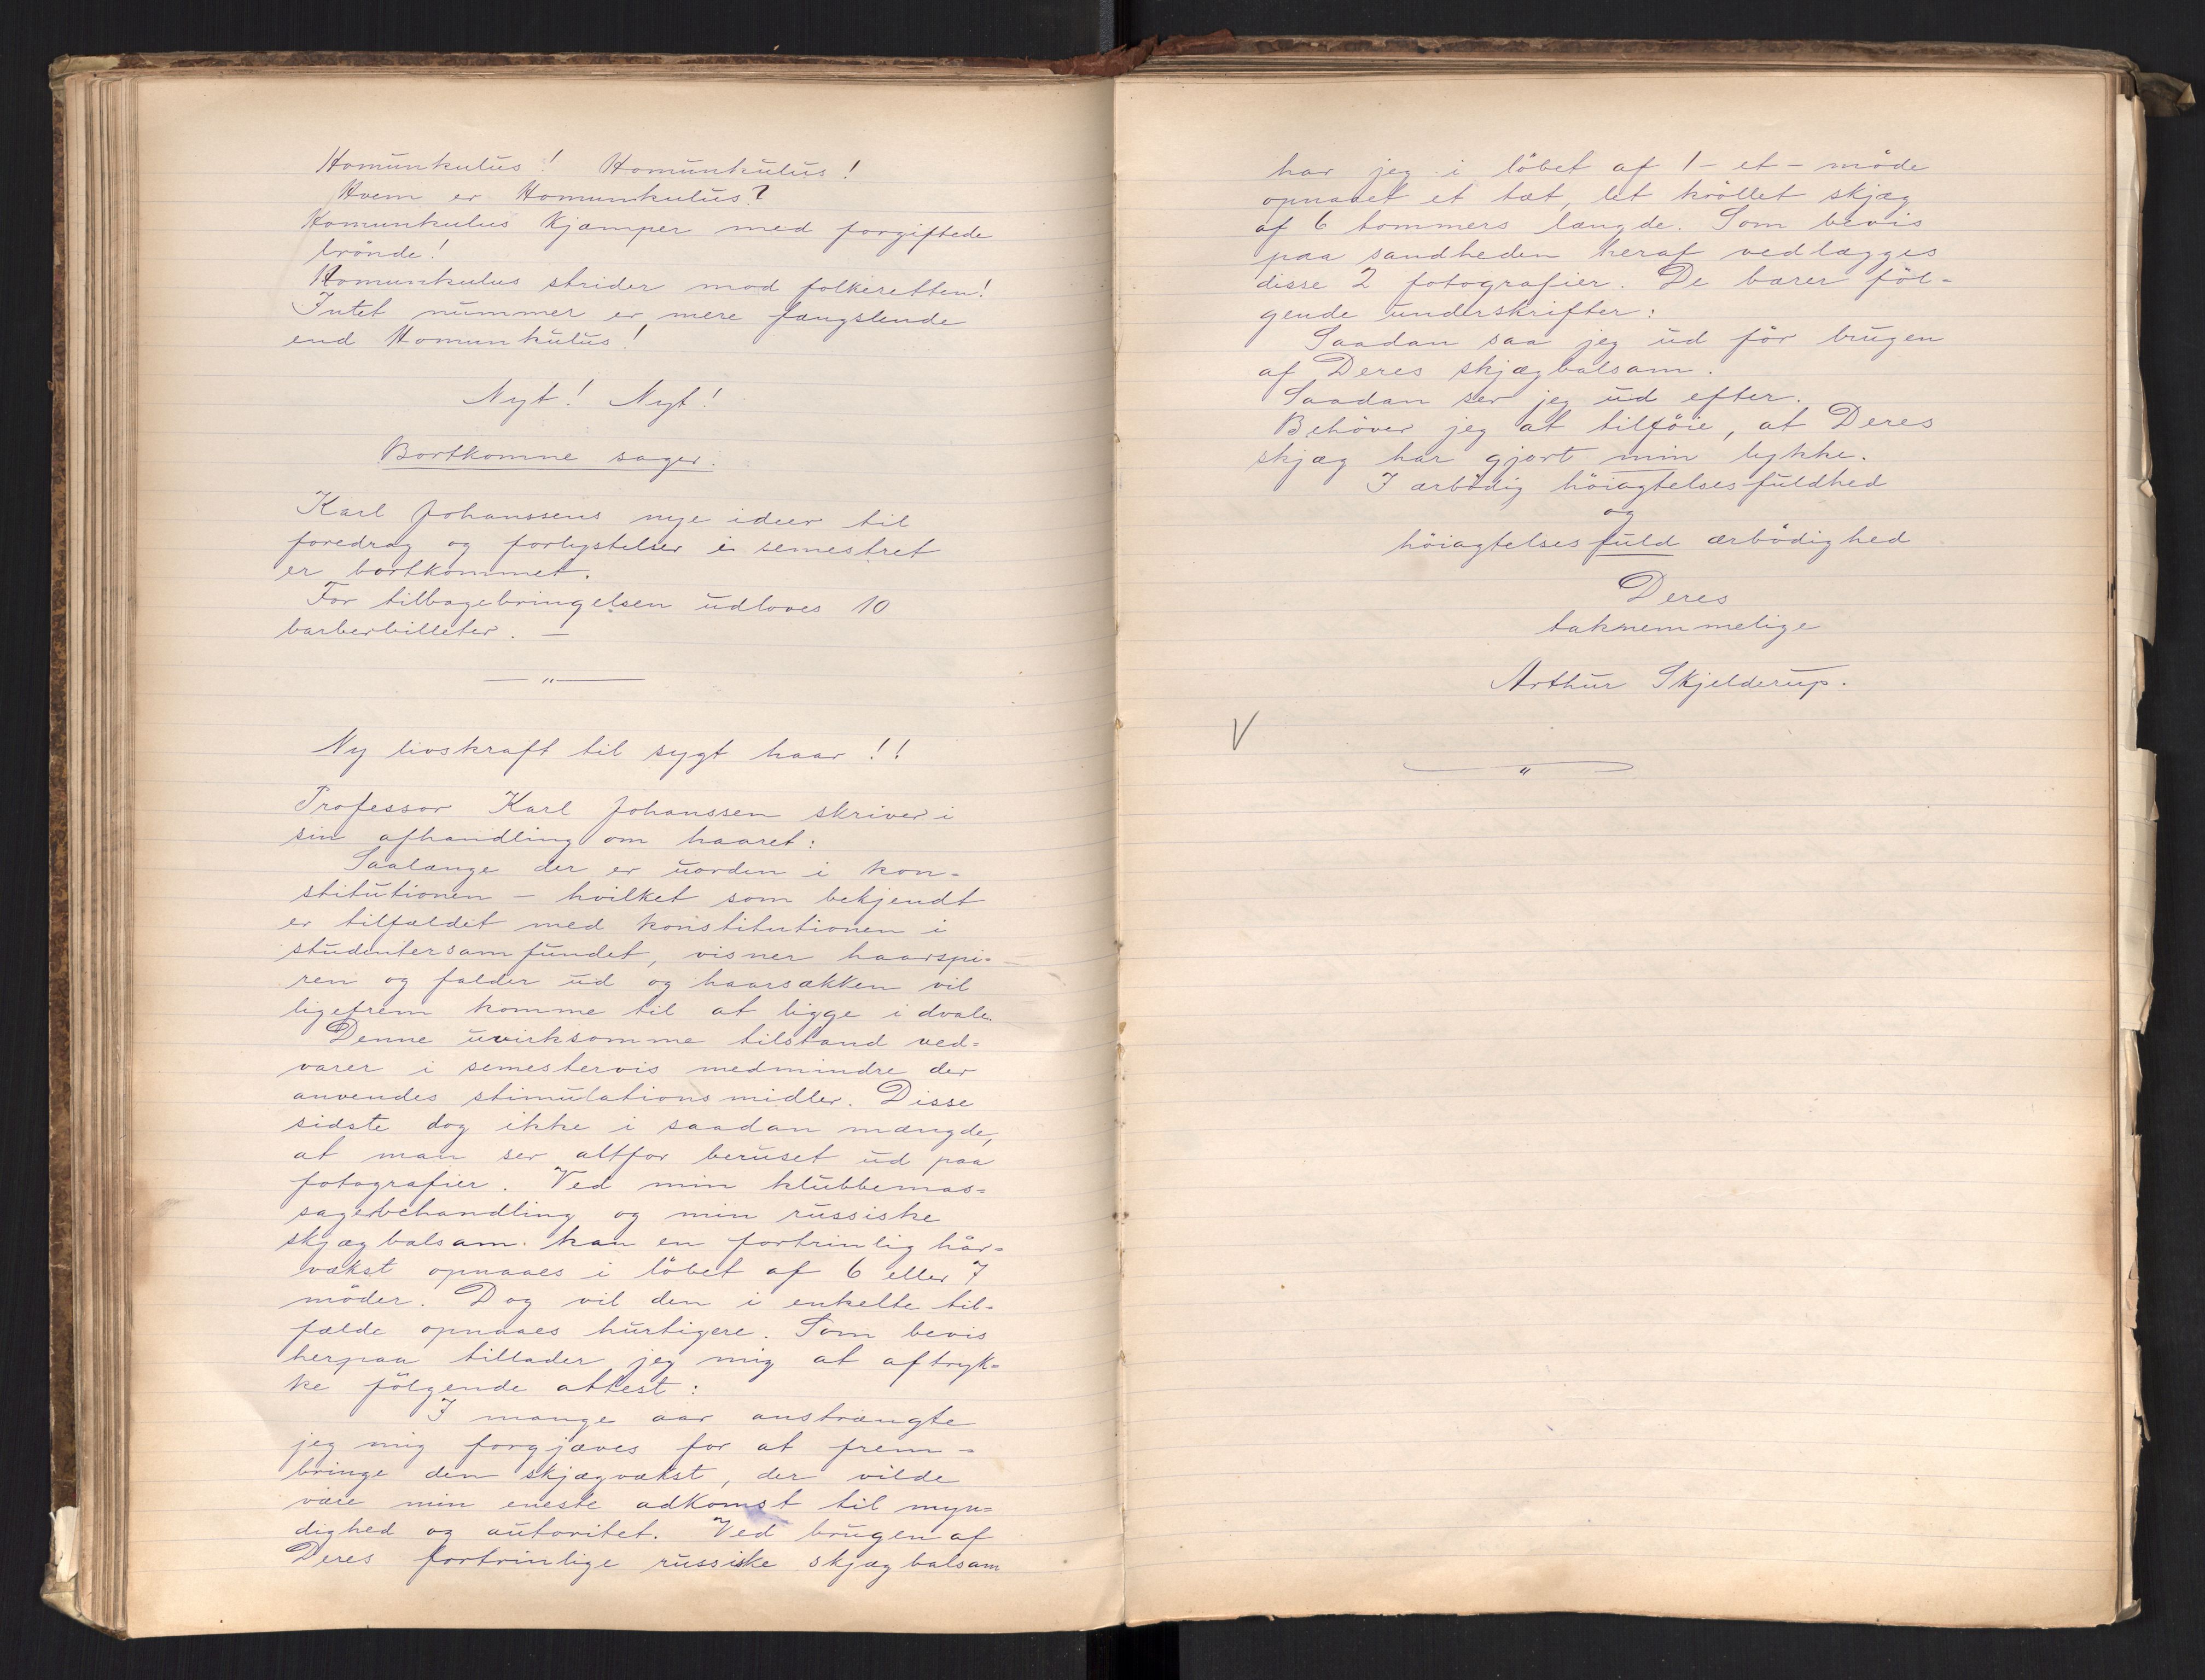 Homunkulus! Homunkulus!
Hvem er Homunkulus?
Homunkulus kjæmper med forgiftede
brönde!
Homunkulus strider mod folkeretten!
Intet nummer er mere fængslende
end Homunkulus!
Nyt! Nyt!
Bortkomne sager.
Karl Johanssens nye ideer til
foredrag og forlystelser i semestret
er bortkommet.
For tilbagebringelsen udloves 10
barberbilleter. —
— " —
Ny livskraft til sygt haar!!
Professor Karl Johanssen skriver i
sin afhandling om haaret:
Saalænge der er uorden i kon-
stitutionen – hvilket som bekjendt
er tilfældet med konstitutionen i
studentersamfundet, visner haarspi-
ren og falder ud og haarsækken vil
ligefrem komme til at ligge i dvale.
Denne uvirksomme tilstand ved-
varer i semestervis medmindre der
anvendes stimulationsmidler. Disse
sidste dog ikke i saadan mængde,
at man ser altfor beruset ud paa
fotografier. Ved min klubbemas-
sagebehandling og min russiske
skjægbalsam kan en fortrinlig hår-
vækst opnaaes i löbet af 6 eller 7
möder. Dog vil den i enkelte til-
fælde opnaaes hurtigere. Som bevis
herpaa tillader jeg mig at aftryk-
ke fölgende attest:
I mange aar anstrængte
jeg mig forgjæves for at frem-
bringe den skjægvækst, der vilde
være min eneste adkomst til myn-
dighed og autoritet. Ved brugen af
Deres fortrinlige russiske skjægbalsam
har jeg i löbet af 1 – et – möde
opnaaet et tæt, let kröllet skjæg
af 6 tommers længde. Som bevis
paa sandheden heraf vedlægges
disse 2 fotografier. De bærer föl-
gende underskrifter:
Saadan saa jeg ud för brugen
af Deres skjægbalsam.
Saadan ser jeg ud efter.
Behöver jeg at tilföie, at Deres
skjæg har gjort min lykke.
I ærbödig höiagtelsesfuldhed
og
höiagtelsesfuld ærbödighed
Deres
taknemmelige
Arthur Skjelderup.
V
— " —